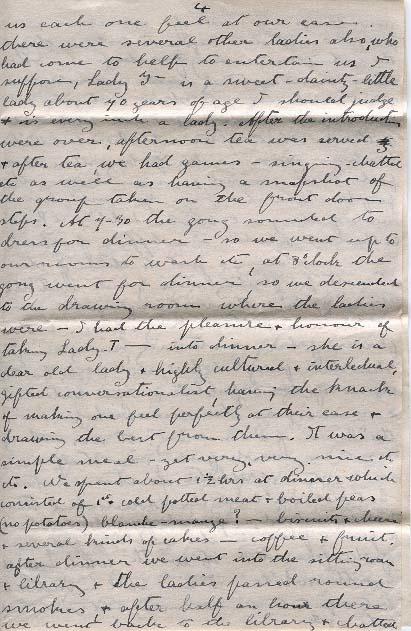 4
us each one feel at our ease
there were several other ladies also, who
had come to help to entertain us I
suppose, Lady T— is a sweet - dainty - little
lady about 70 years of age I should judge
& is every inch a lady. After the introductions
were over, afternoon tea was served
& after tea, we had games - singing - chatted
etc as well as having a snapshot of
the group taken on the front door
steps. At 7-30 the gong sounded to
dress for dinner - so we went up to
our rooms to wash etc, at 8 o'clock the
gong went for dinner, so we descended
to the drawing room where the ladies
were - I had the pleasure & honour of
taking Lady T — into dinner - she is a
dear old lady & highly cultured & intellectual,
gifted conversationalist, having the knack
of making one feel perfectly at their ease &
drawing the best from them. It was a
simple meal - yet very, very nice etc
etc. We spent about 1½ hrs at dinner which
consisted of 1st cold potted meat & boiled peas
(no potatoes) blanche-mange? - biscuits & cheese
& several kinds of cakes - coffee & fruit.
after dinner we went into the sitting room
& library & the ladies passed round
smokes & after half an hour there
we went back to the library & chatted